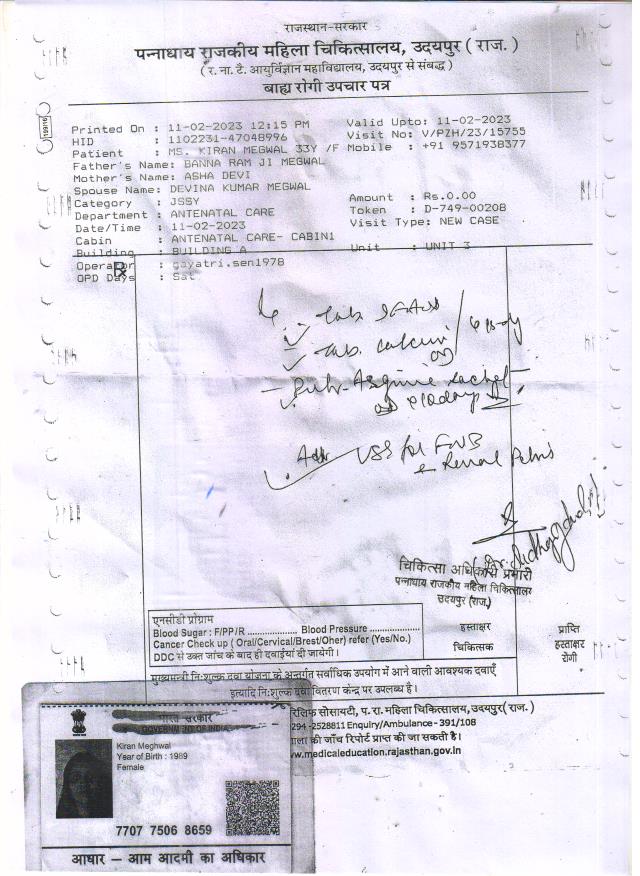 राजस्थान-सरकार
पन्नाधाय राजकीय महिला चिकित्सालय, उदयपुर ( राज. )
( र. ना. टै. आयुर्विज्ञान महाविद्यालय, उदयपुर से संबद्ध )
बाह्य रोगी उपचार पत्र
Printed On : 11-02-2023 12:15 PM Valid Upto: 11-02-2023
HID : 1102231-47048996 Visit No: V/PZH/23/15755
Patient : MS. KIRAN MEGWAL 33Y /F Mobile : +91 9571938377
Father's Name: BANNA RAM JI MEGWAL
Mother's Name: ASHA DEVI
Spouse Name: DEVINA KUMAR MEGWAL
Category : JSSY Amount : Rs.0.00
Department : ANTENATAL CARE Token : D-749-00208
Date/Time : 11-02-2023 Visit Type: NEW CASE
Cabin : ANTENATAL CARE- CABIN1
Building : BUILDING A Unit : UNIT 3
Operator : gayatri.sen1978
OPD Days : Sat
Tab.
Tab. calcium
sachet
Adv USG for FWB
Renal
चिकित्सा अधिकारी प्रभारी
पन्नाधाय राजकीय महिला चिकित्सालय
उदयपुर (राज.)
एनसीडी प्रोग्राम
Blood Sugar : F/PP/R .................... Blood Pressure ....................
Cancer Check up ( Oral/Cervical/Brest/Oher) refer (Yes/No.)
DDC से उक्त जांच के बाद ही दवाईयां दी जायेगी।
हस्ताक्षर
चिकित्सक
प्राप्ति
हस्ताक्षर
रोगी
मुख्यमन्त्री नि:शुल्क दवा योजना के अन्तर्गत सर्वाधिक उपयोग में आने वाली आवश्यक दवाएँ
इत्यादि नि:शुल्क दवा वितरण केन्द्र पर उपलब्ध है।
रिलिफ सोसायटी, प. रा. महिला चिकित्सालय, उदयपुर ( राज. )
294 -2528811 Enquiry/Ambulance - 391/108
की जाँच रिपोर्ट प्राप्त की जा सकती है।
w.medicaleducation.rajasthan.gov.in
भारत सरकार
GOVERNMENT OF INDIA
Kiran Meghwal
Year of Birth : 1989
Female
7707 7506 8659
आधार – आम आदमी का अधिकार